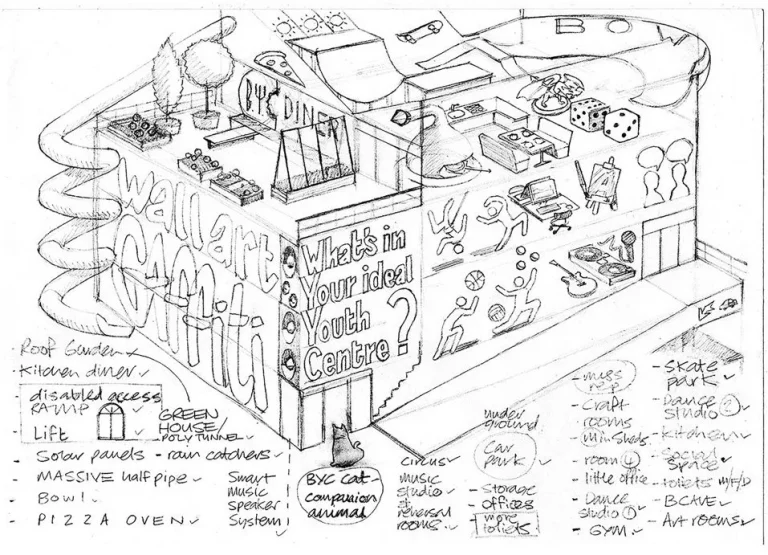 BO
BYC DINER
wall art
Graffiti
What's in
Your ideal
Youth
Centre?
- Roof Garden
- Kitchen diner
disabled access
RAMP
- Lift
GREEN
HOUSE/
POLYTUNNEL
- Solar panels - rain catchers
- MASSIVE halfpipe
- Bowl
- PIZZA OVEN
Smart
music
speaker
System
BYC cat-
companion
animal
circus
music
studio
rooms.
under
ground
Car
park
- Storage
- offices
- more
toilets
- Craft
rooms
- room
- little office
- Dance
studio ①
- GYM
- SKATE
park
- Dance
studio ②
- Kitchen
- Social
space
- toilets M/F/D
- BCAVE
- Art rooms